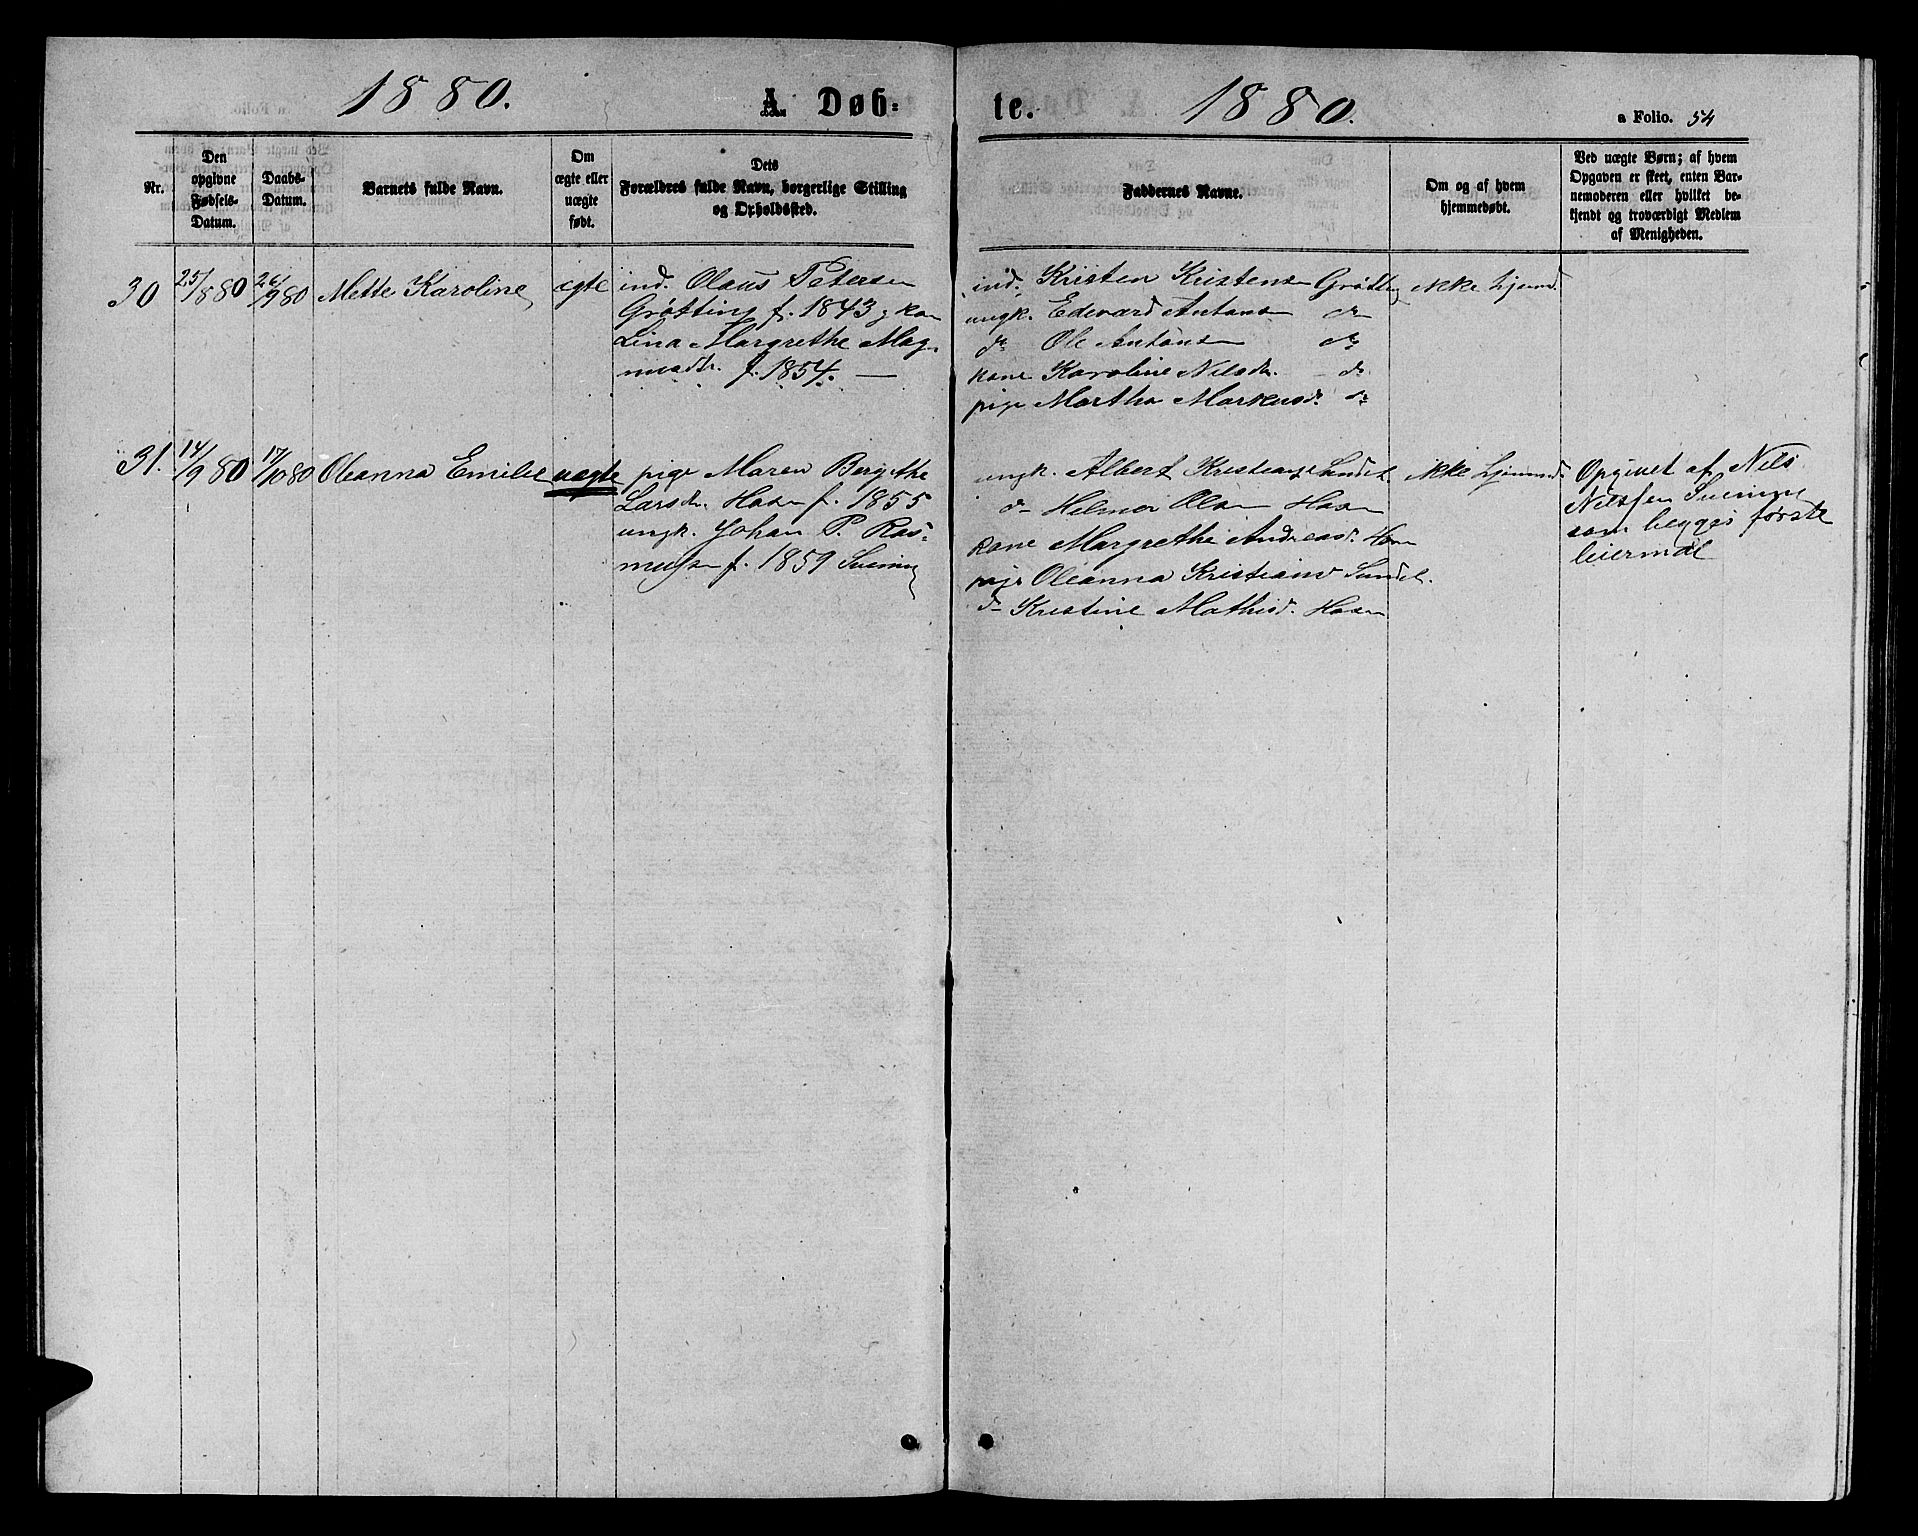 1880. A. Døb=
te. 1880. a Folio. 54
Nr.
Den
opgivne
Fødsels-
Datum.
Daabs-
Datum.
Barnets fulde Navn.
Om
ægte eller
uægte
født.
Dets
Forældres fulde Navn, borgerlige Stilling
og Opholdssted.
Faddernes Navne.
Om og af hvem
hjemmedøbt.
Ved uægte Børn; af hvem
Opgaven er skeet, enten Bar-
nemoderen eller hvilket be-
kjendt og troværdigt Medlem
af Menigheden.
30 25/8 80 26/9 80 Mette Karoline ægte
ind. Olaus Petersen
Grøtting f. 1843 & kone
Lina Margrethe Mag-
nusdtr. f. 1854. —
ind. Kristen Kristensen Grøtting
ungk. Edevard Antonsen do
do Ole Antonsen do
kone Karoline Nilsdr. - do
pige Martha Markusd. do
ikke hjemd.
31. 14/9 80 17/10 80 Oleanna Emilie uægte
pige Maren Bergithe
Larsdr. Hasen f. 1855
ungk. Johan P. Ras=
musen f. 1859
ungk. Albert Kristiansen Sundet
do Helmer Olsen Hasen
kone Margrethe Andreasd. Hasen
pige Oleanna Kristiansd Sundet.
do Kristine Mathisd. Hasen
ikke hjemmd.
Opgivet af Nils
Nilssen
som begges første
leiermål